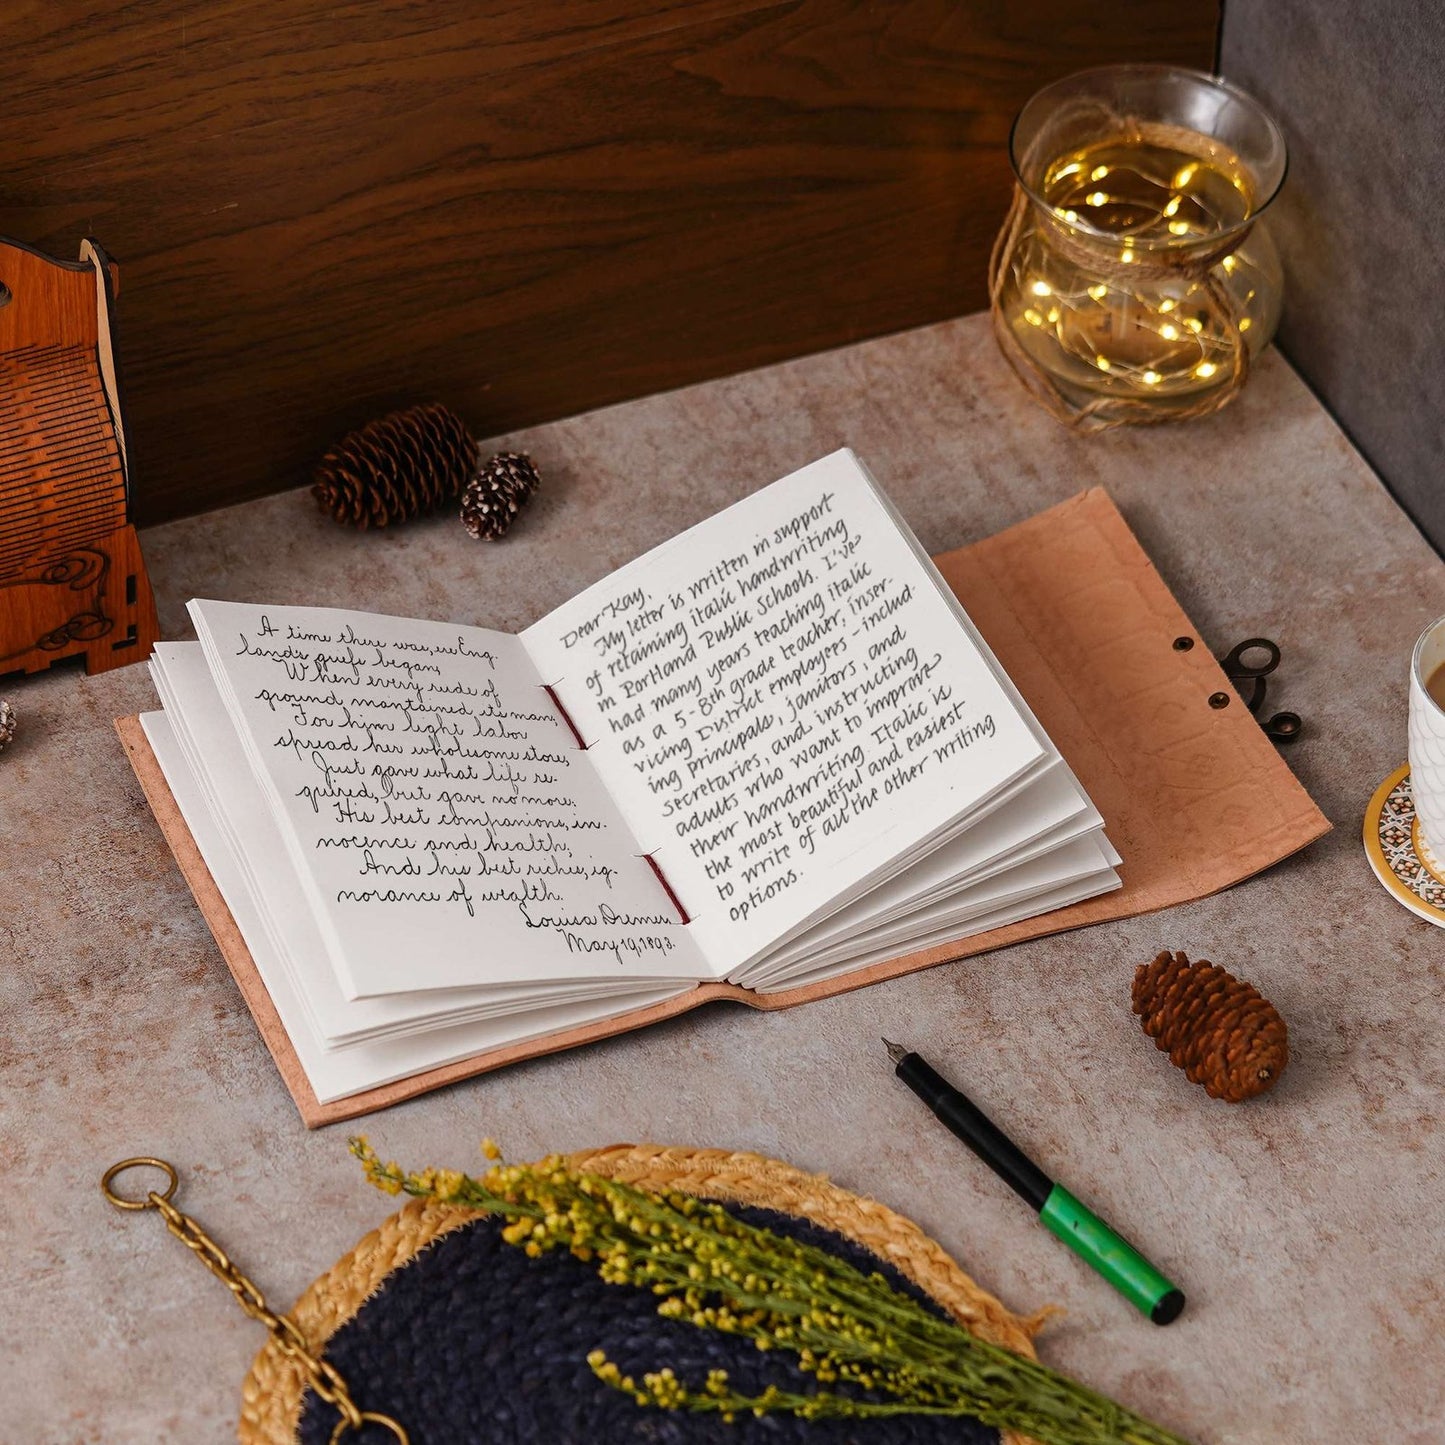 A time there was, ere Eng-
land's griefs began,
When every rude of
ground mantained its man;
For him light labor
spread her wholesome store,
Just gave what life re-
quired, but gave no more;
His best companions, in-
nocence and health;
And his best riches, ig-
norance of wealth.
Louisa Dremer.
May 19, 1893.
Dear Kay,
My letter is written in support
of retaining italic handwriting
in Portland Public Schools. I've
had many years teaching italic
as a 5-8th grade teacher, inser-
vicing District employees - includ-
ing principals, janitors, and
secretaries, and instructing
adults who want to improve
their handwriting. Italic is
the most beautiful and easiest
to write of all the other writing
options.